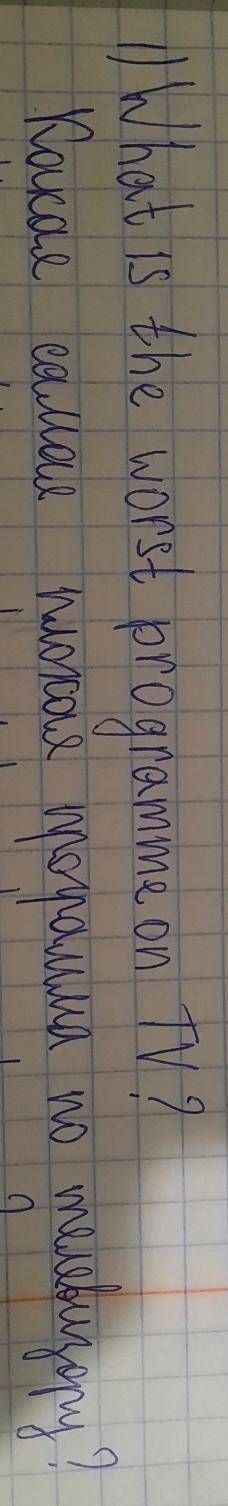 1) What is the worst programme on TV?
Какая самая плохая программа по телевизору?